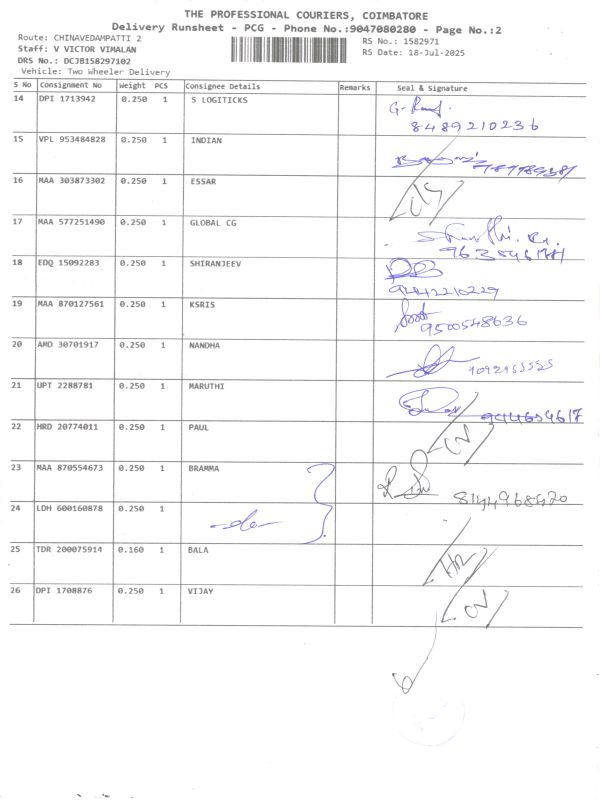 THE PROFESSIONAL COURIERS, COIMBATORE
Delivery Runsheet - PCG - Phone No.:9047080280 - Page No.:2
Route: CHINAVEDAMPATTI 2
RS No.: 1582971
Staff: V VICTOR VIMALAN
RS Date: 18-Jul-2025
DRS No.: DCJB158297102
Vehicle: Two Wheeler Delivery
S No Consignment No Weight PCS Consignee Details Remarks Seal & Signature
14 DPI 1713942 0.250 1 S LOGITICKS
8489210236
15 VPL 953484828 0.250 1 INDIAN
16 MAA 303873302 0.250 1 ESSAR
17 MAA 577251490 0.250 1 GLOBAL CG
18 EDQ 15092283 0.250 1 SHIRANJEEV
9442210229
19 MAA 870127561 0.250 1 KSRIS
9500548636
20 AMD 30701917 0.250 1 NANDHA
21 UPT 2288781 0.250 1 MARUTHI
9446054617
22 HRD 20774011 0.250 1 PAUL
23 MAA 870554673 0.250 1 BRAMMA
8144968420
24 LDH 600160878 0.250 1
25 TDR 200075914 0.160 1 BALA
26 DPI 1708876 0.250 1 VIJAY